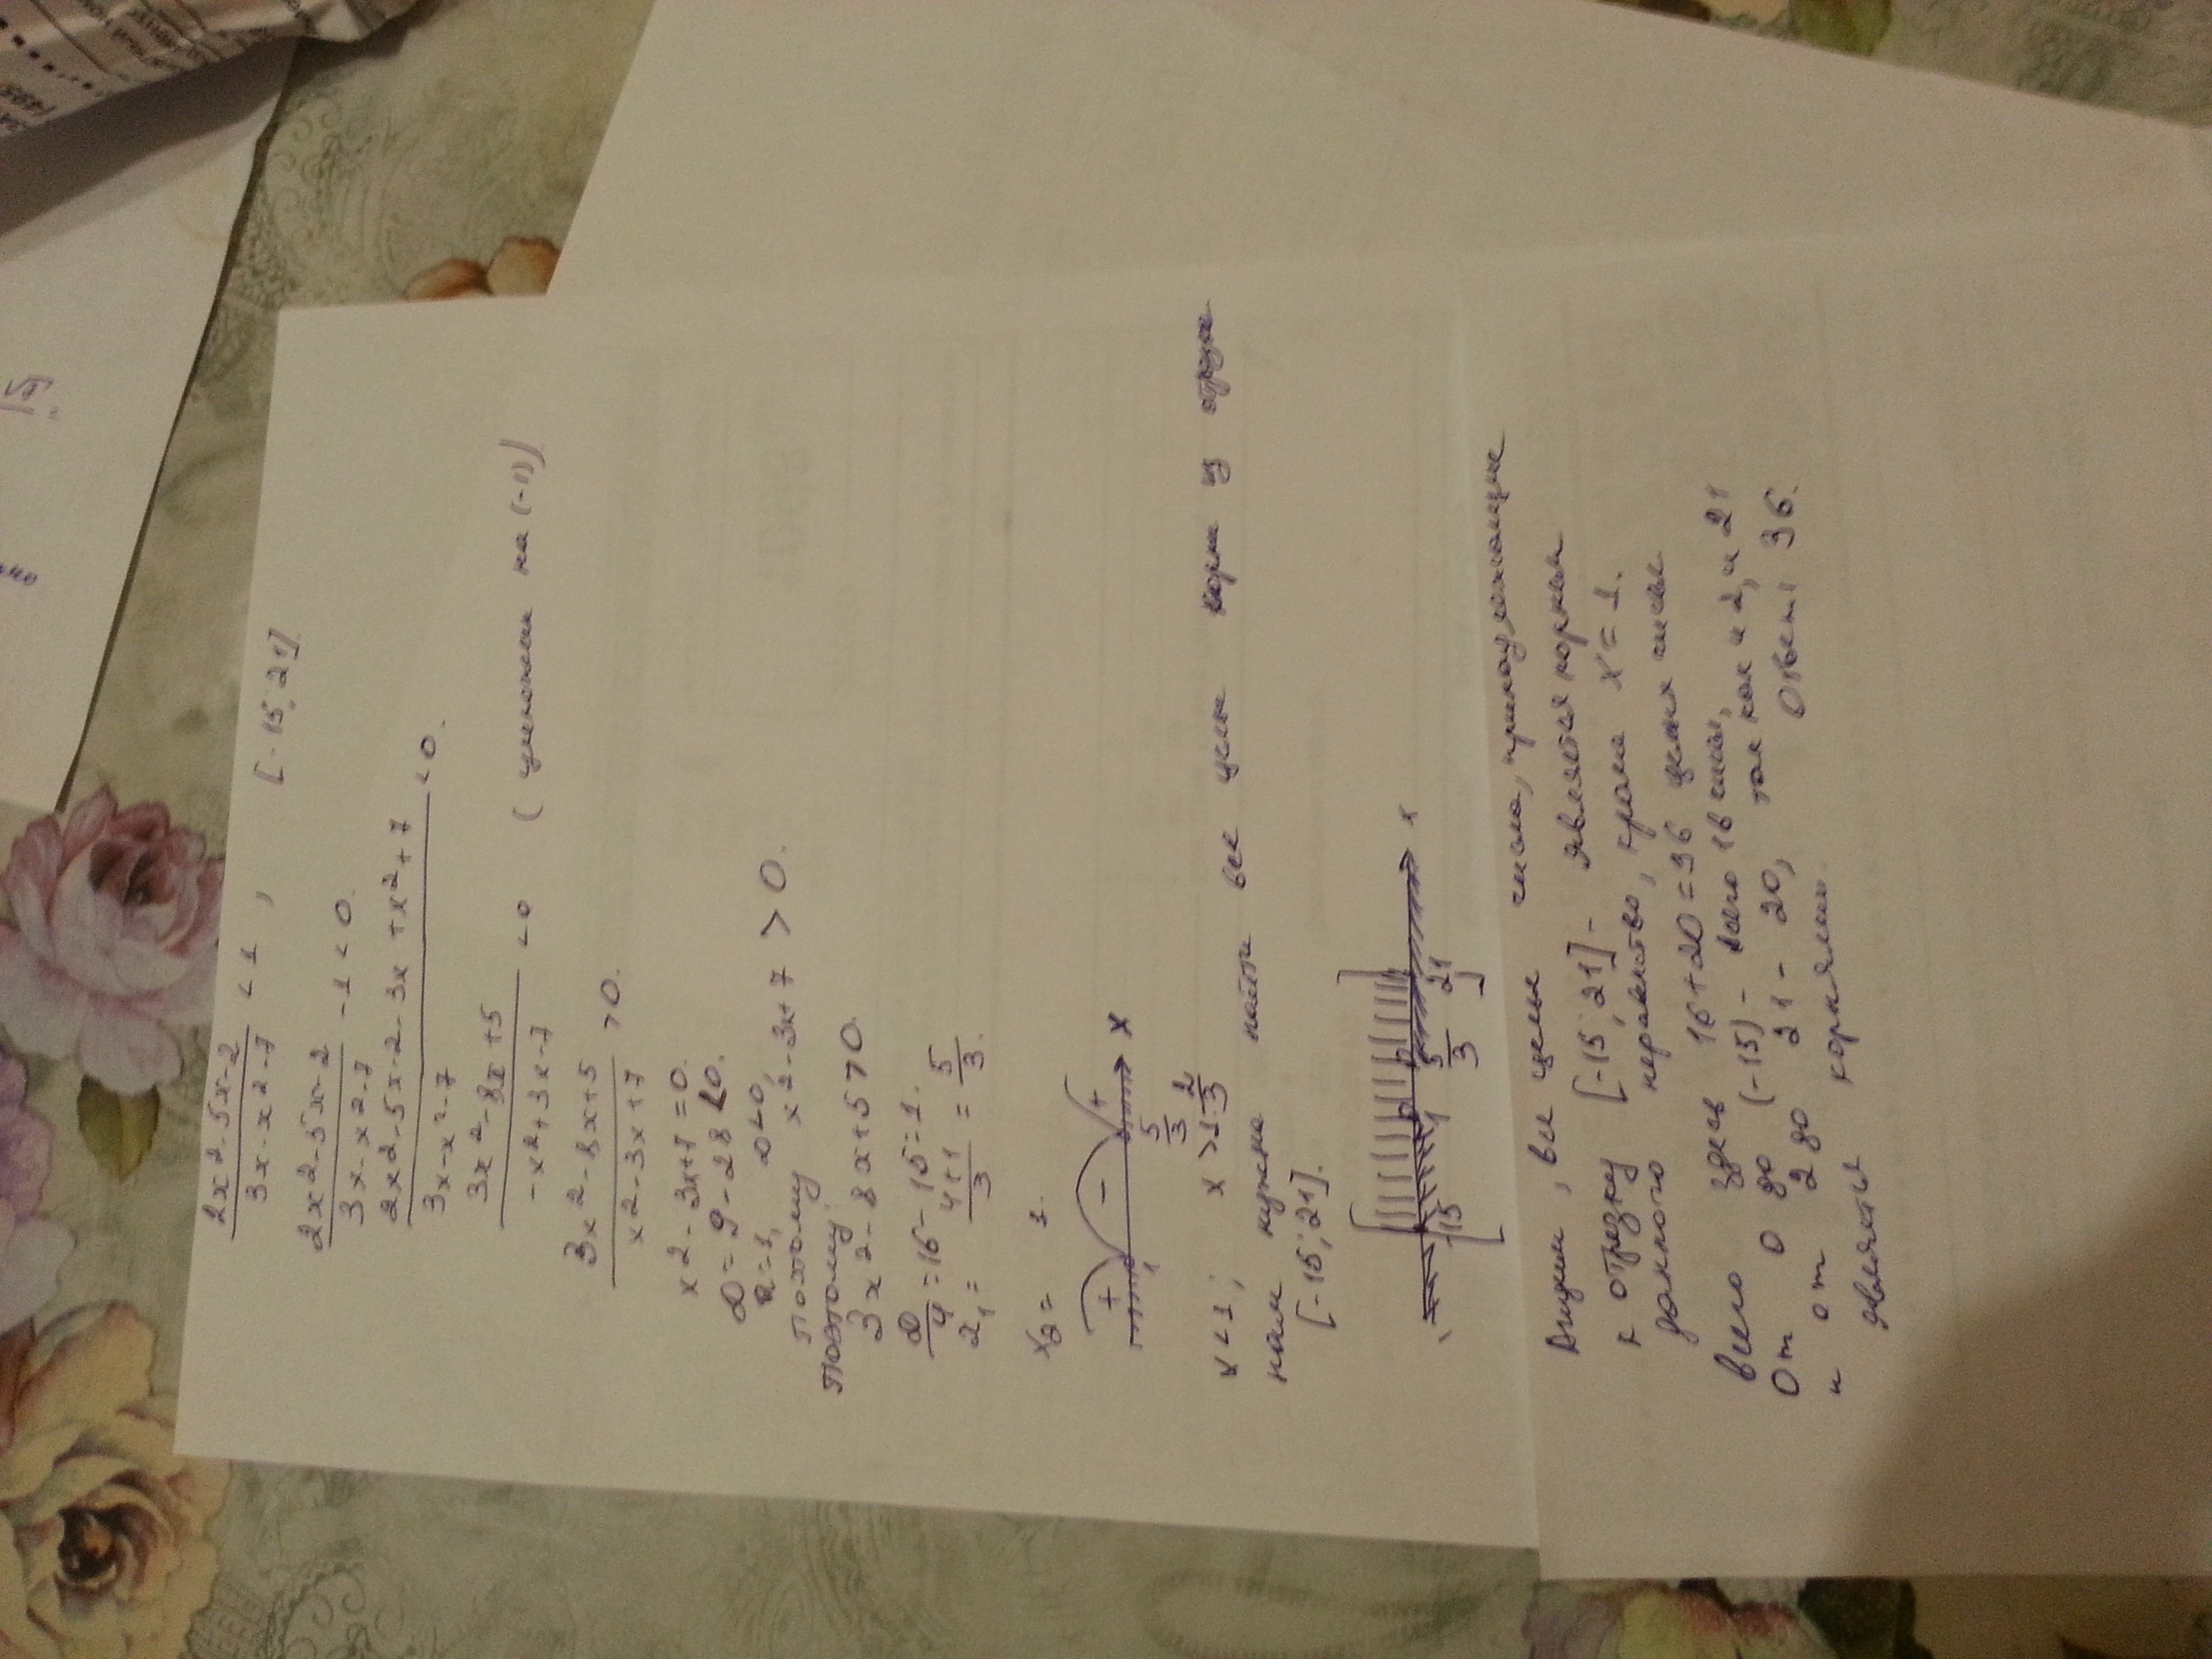 2x2-5x-2
3x-x2-7 < 1 , [-15; 21]
2x2-5x-2
3x-x2-7 -1 < 0.
2x2-5x-2-3x+x2+7
3x-x2-7 < 0.
3x2-8x+5
-x2+3x-7 < 0 ( умножим на (-1))
3x2-8x+5
x2-3x+7 > 0.
x2-3x+7=0.
D=9-28<0.
a=1, D<0,
поэтому x2-3x+7 > 0.
поэтому:
3x2-8x+5>0.
D
4 =16-15=1.
4+1
3 = 5
3.
x2= 1.
+ - +
1 5
3 x
x<1; x>1 2
3
нам нужно найти все целые корни из отрезка
[-15; 21].
-15 1 5
3 21 x
Видим, все целые числа, принадлежащие
к отрезку [-15; 21] - является корнем
данного неравенство, кроме x=1.
Всего здесь 16+20=36 целых чисел
От 0 до (-15) - всего 16 чисел,
и от 2 до 21 - 20, так как и 2, и 21
являются корнями. Ответ: 36.